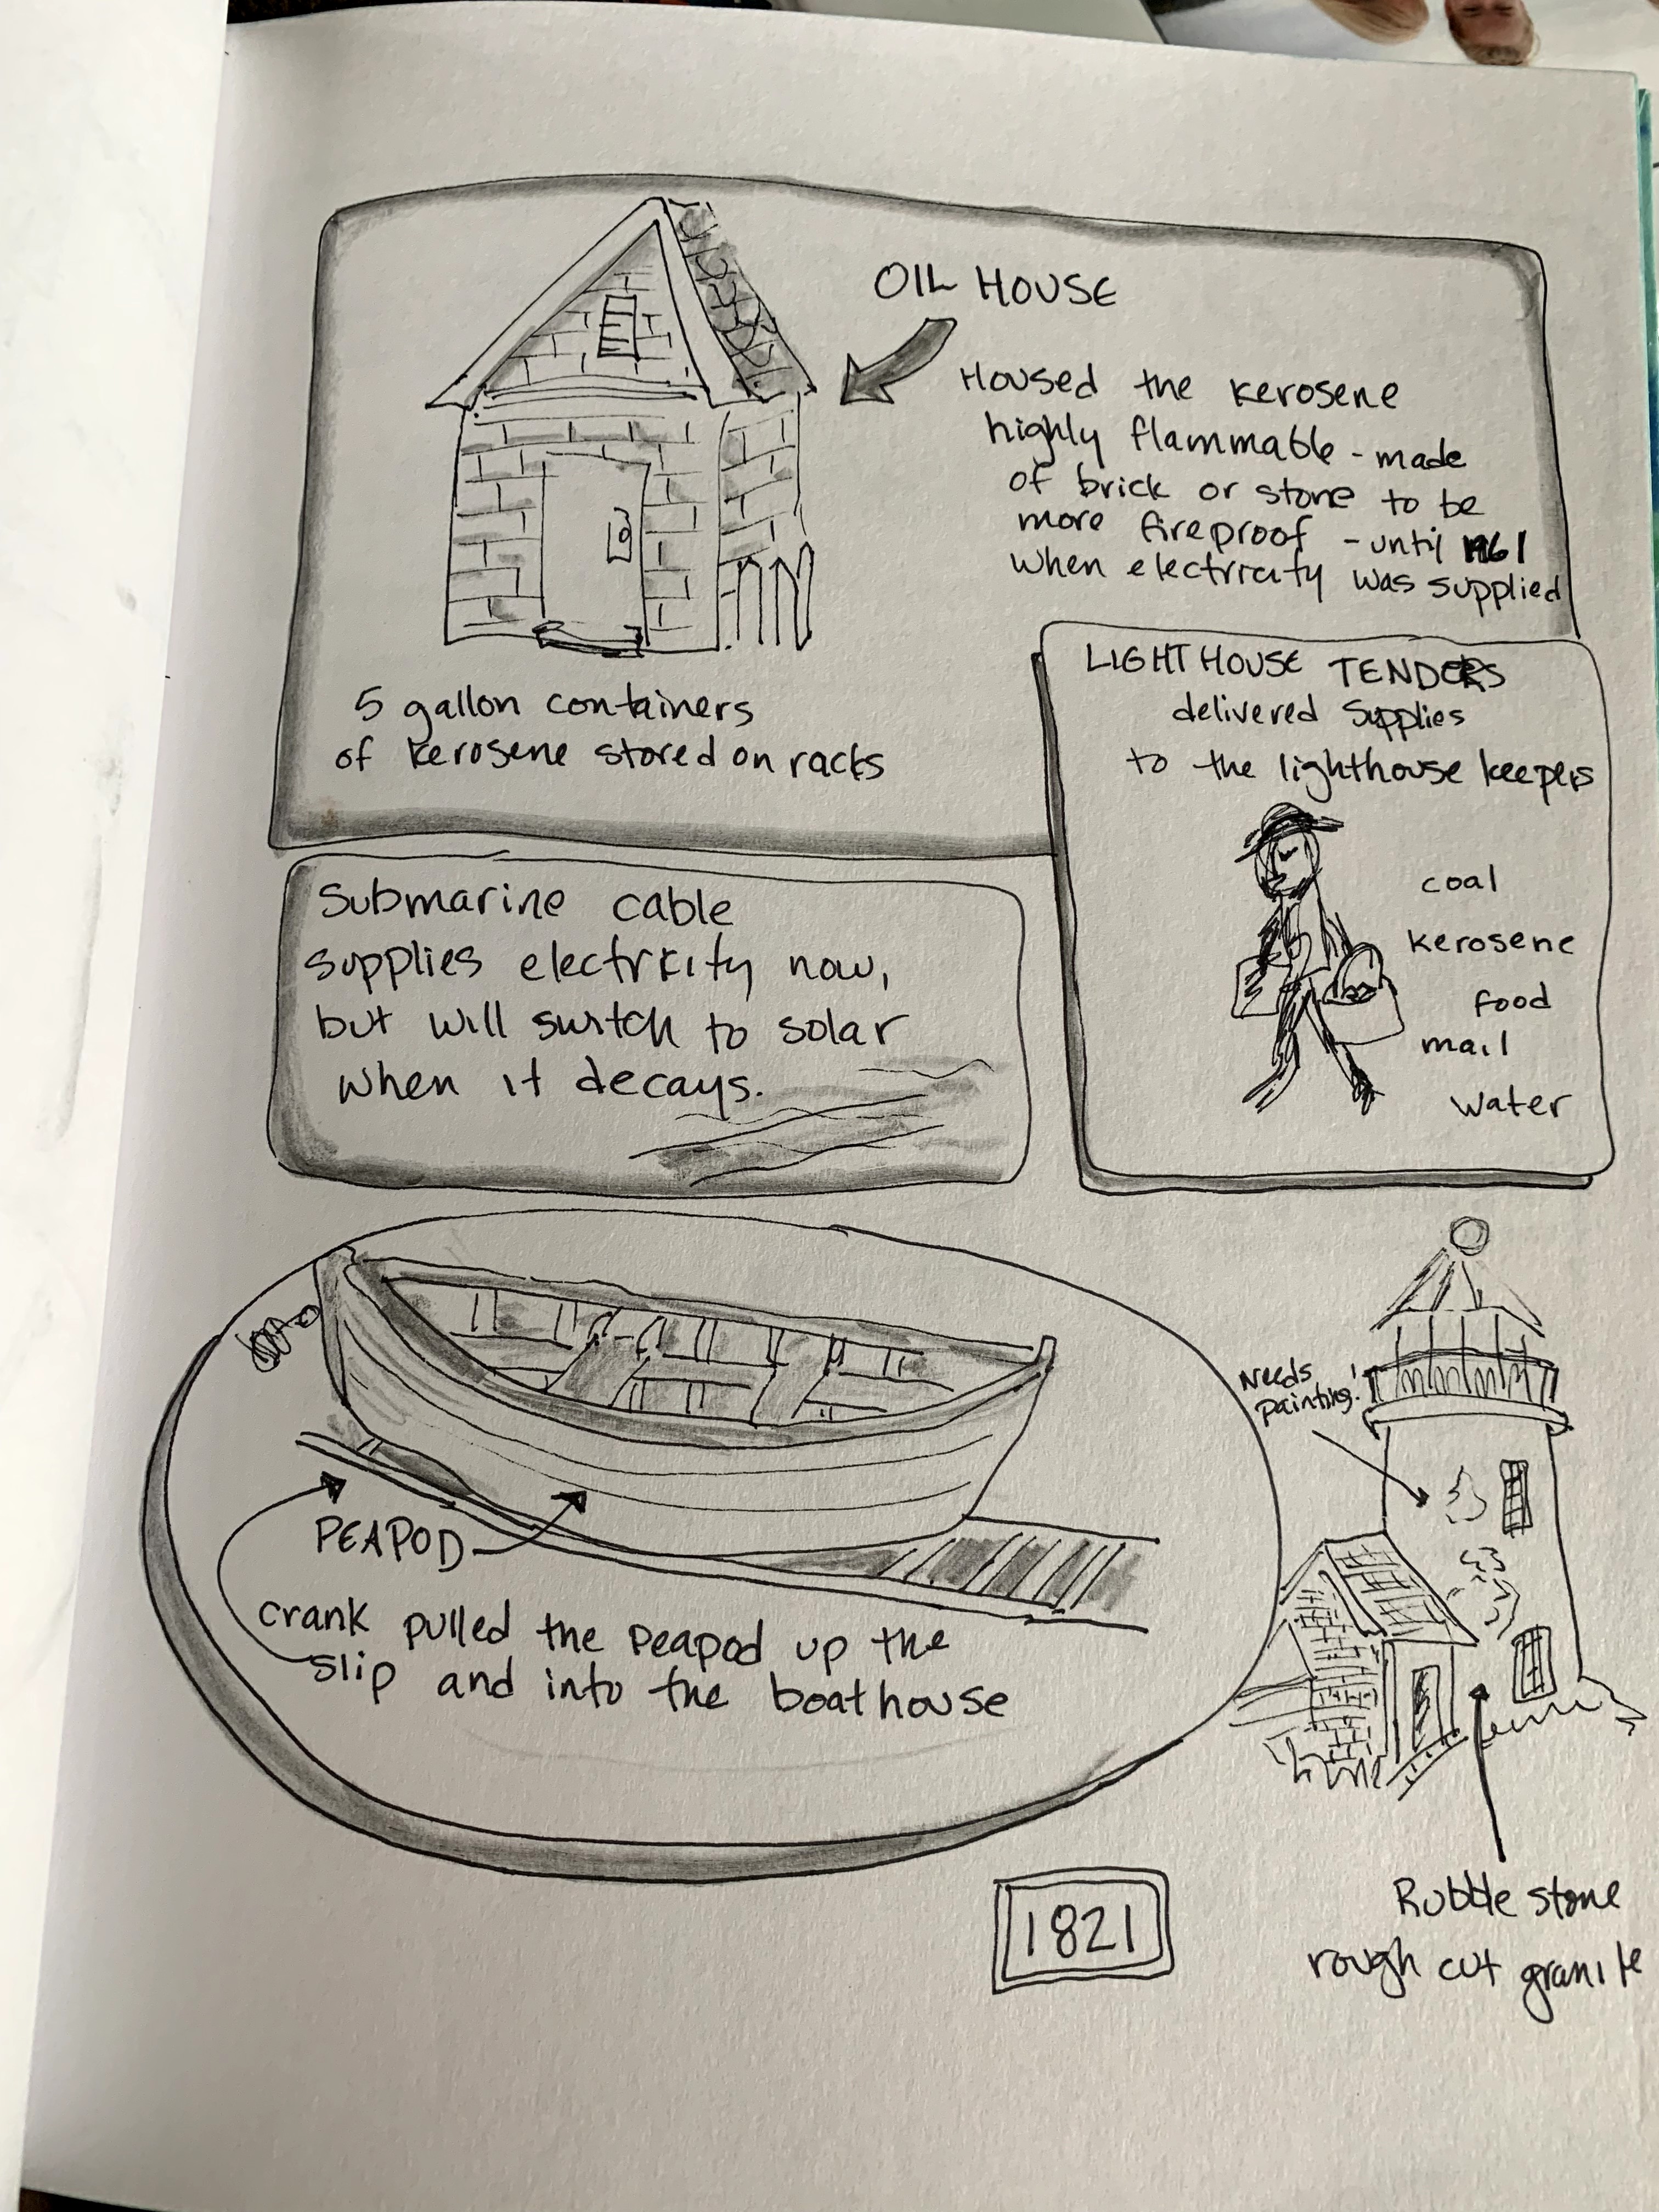 OIL HOUSE
Housed the kerosene
highly flammable - made
of brick or stone to be
more fireproof - until 1961
when electricity was supplied
5 gallon containers
of kerosene stored on racks
LIGHTHOUSE TENDERS
delivered supplies
to the lighthouse keepers
coal
kerosene
food
mail
water
Submarine cable
supplies electricity now,
but will switch to solar
when it decays.
PEAPOD
crank pulled the peapod up the
slip and into the boathouse
Needs
painting!
1821
Rubble stone
rough cut granite